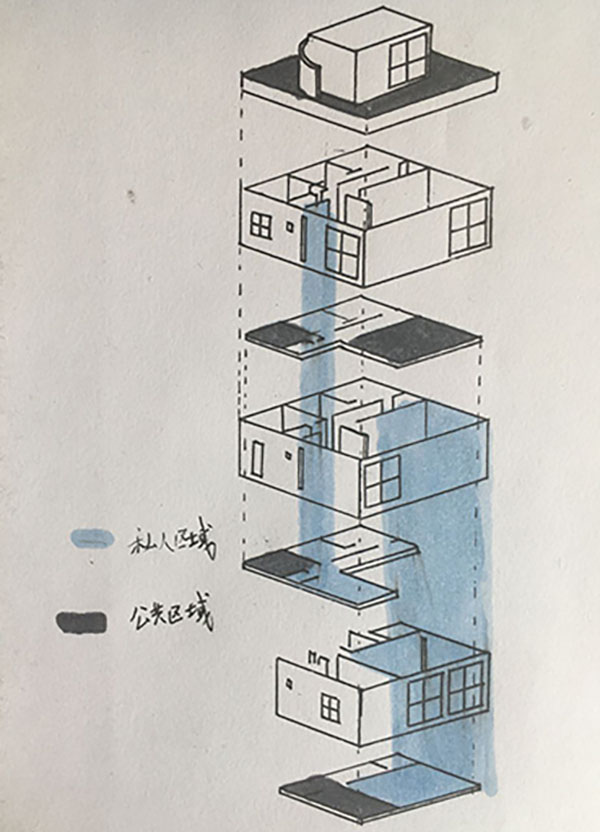 私人区域
公共区域